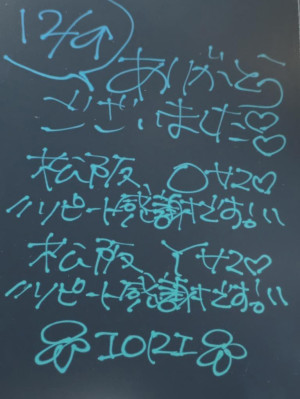 12/9
ありがとう
ございました♡♡
松阪、Oサマ♡
ハリピート感謝です!!ハ
松阪 Yサマ♡
ハリピート感謝です!!ハ
IORI